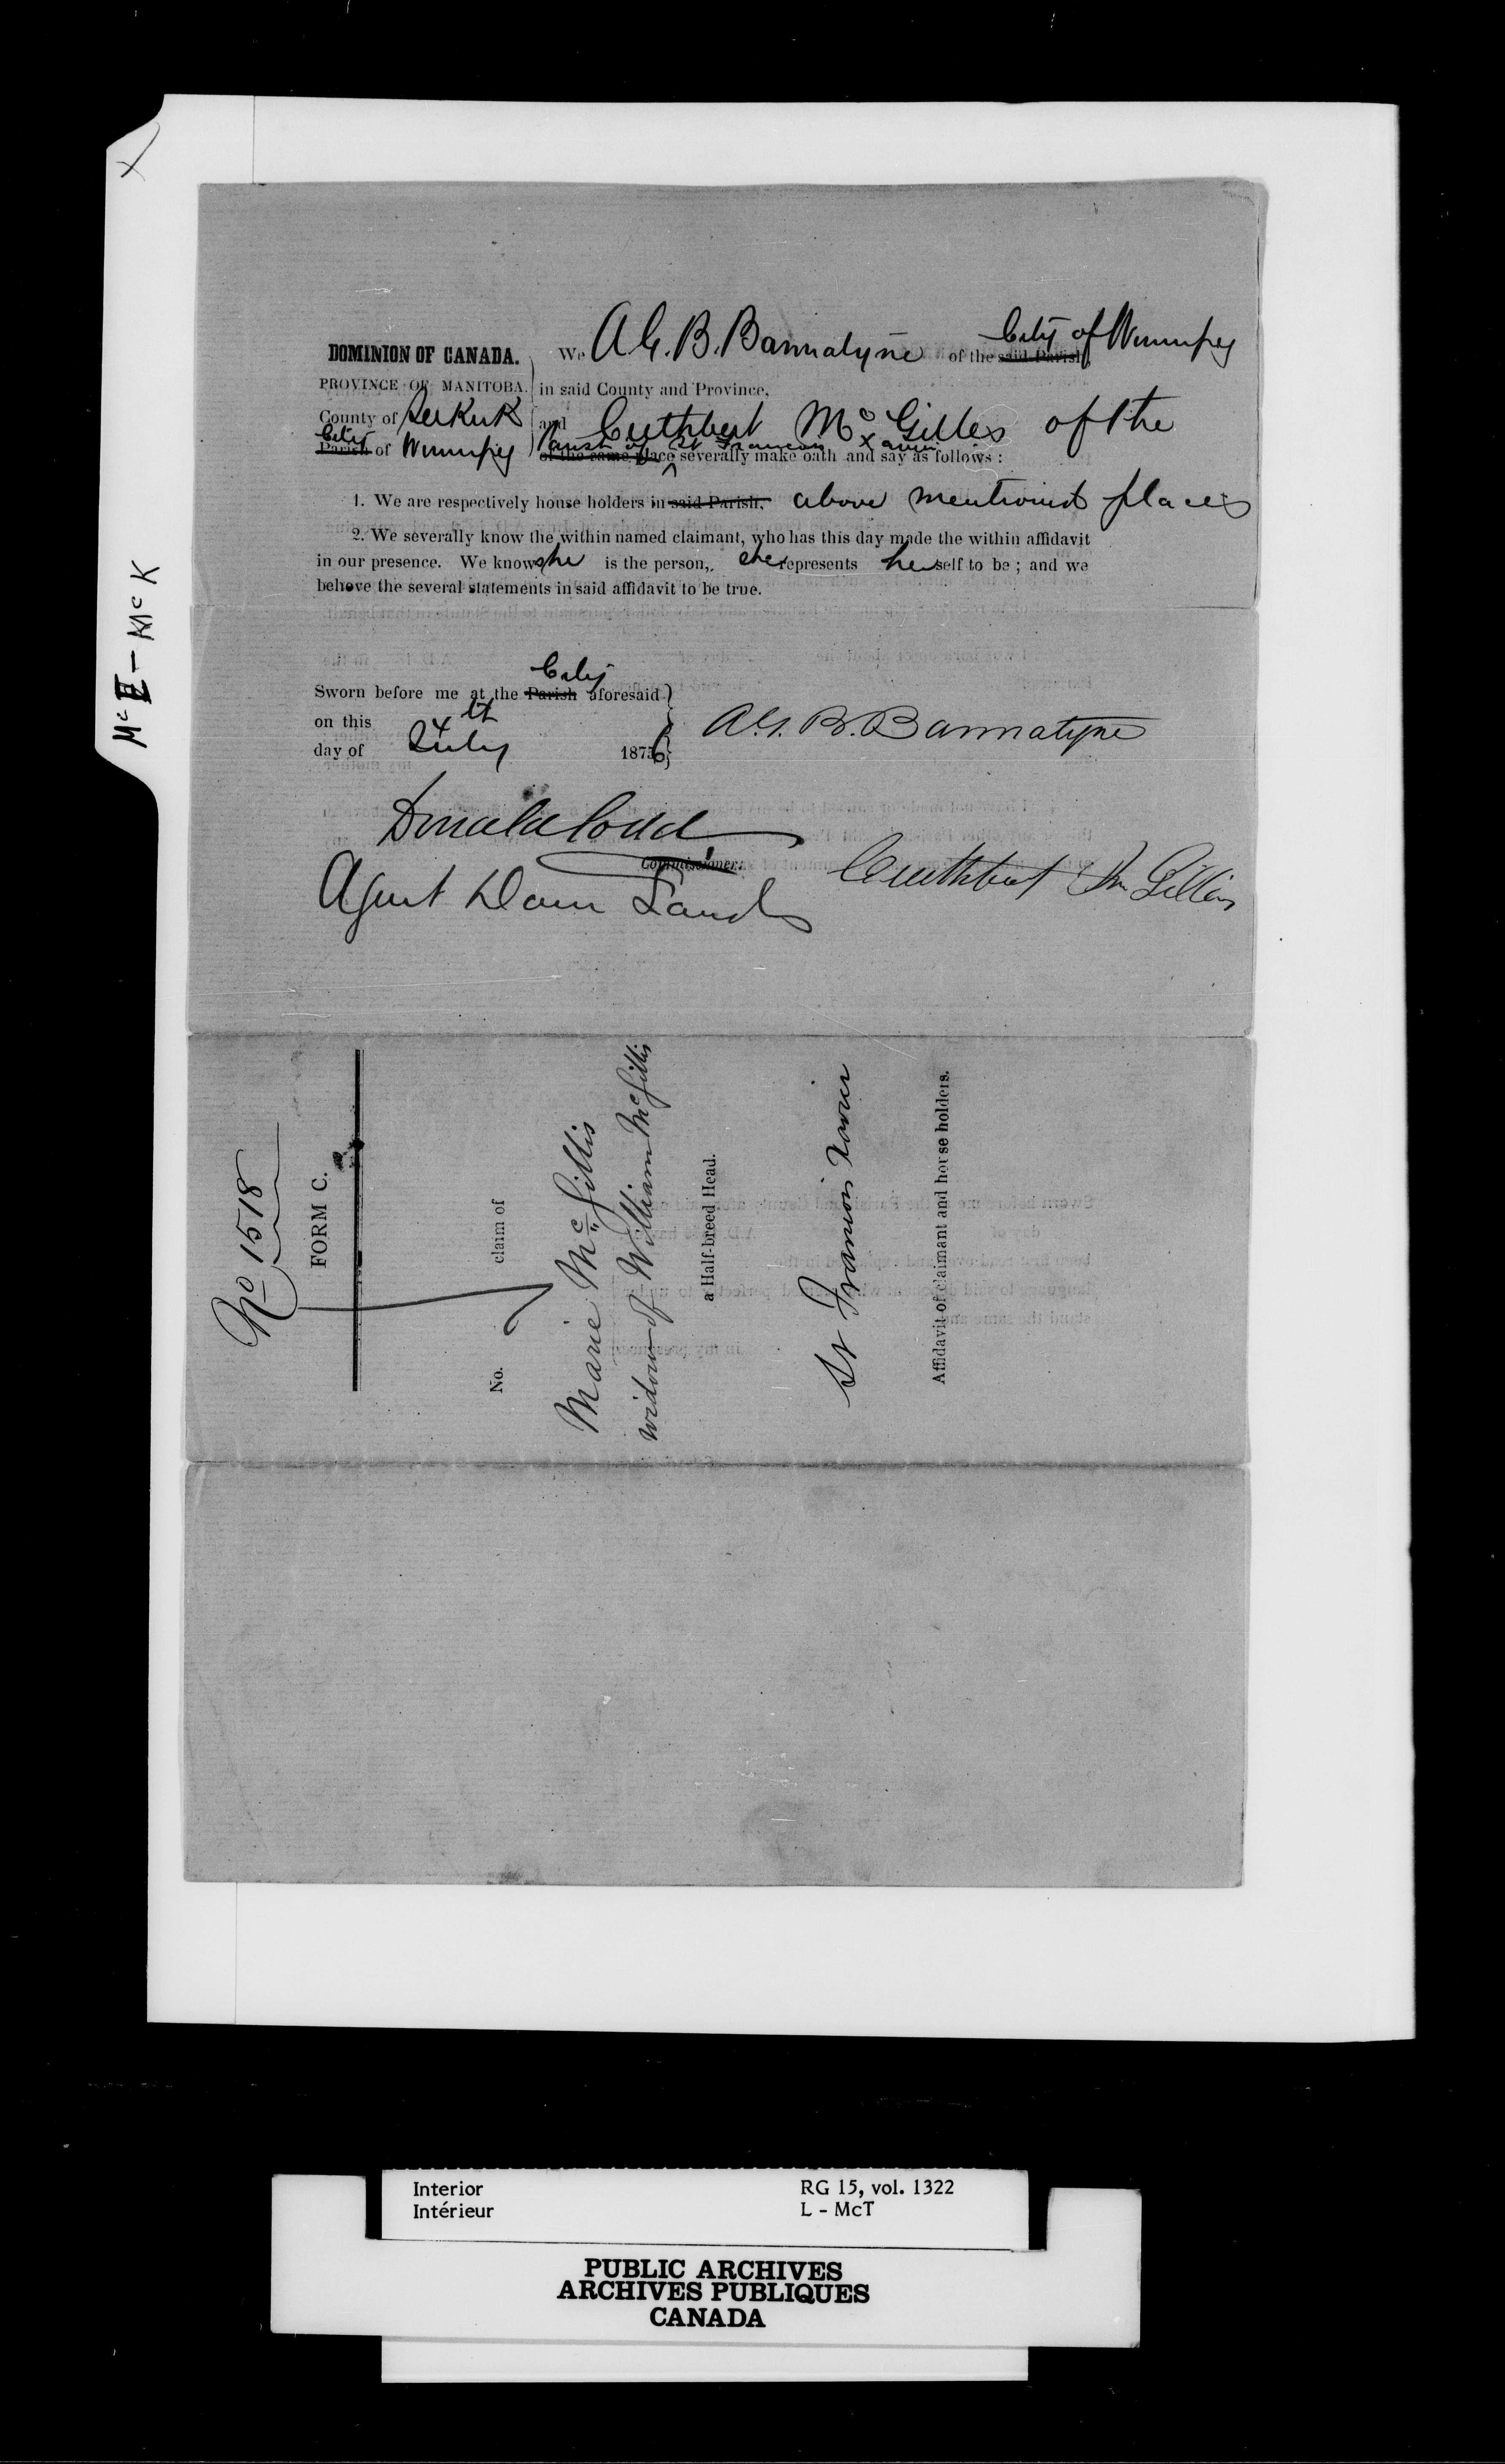 X
McE - McK
DOMINION OF CANADA.
PROVINCE OF MANITOBA.
County of Selkirk
City
Parish of Winnipeg
We A.G.B. Bannatyne of the said Parish City of Winnipeg
in said County and Province,
and Cuthbert Mc Gilles of the
Parish of St Francois Xavier
of the same place severally make oath and say as follows :
1. We are respectively house holders in said Parish, above mentioned places
2. We severally know the within named claimant, who has this day made the within affidavit
in our presence. We know she is the person, she represents herself to be ; and we
believe the several statements in said affidavit to be true.
City
Sworn before me at the Parish aforesaid
on this 4th
day of July 1876
A.G.B. Bannatyne
Donald Codd
Commissioner.
Agent Dom Lands
Cuthbert Mc Gillis
No 1518
FORM C.
No. claim of
Marie McGillis
widow of William McGillis
a Half-breed Head.
St Francois Xavier
Affidavit of claimant and house holders.
Interior RG 15, vol. 1322
Intérieur L - McT
PUBLIC ARCHIVES
ARCHIVES PUBLIQUES
CANADA